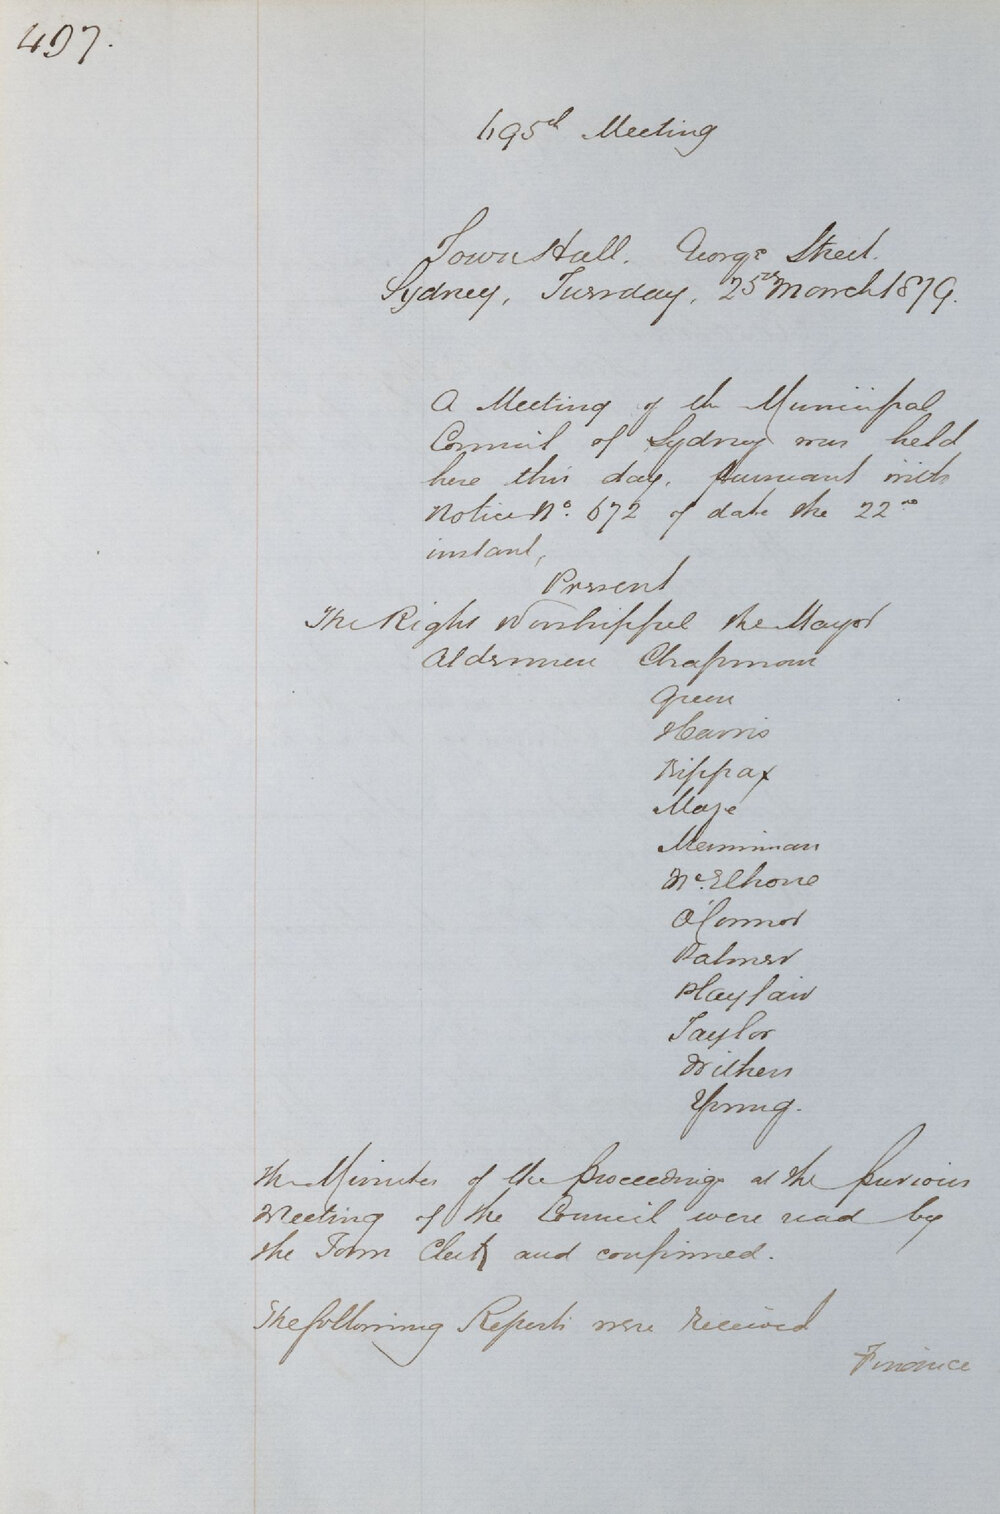 497.
695th Meeting
Town Hall. George Street.
Sydney, Tuesday, 25th March 1879.
A Meeting of the Municipal
Council of Sydney was held
here this day, pursuant with
Notice No. 672 of date the 22nd
instant,
Present
The Right Worshipful the Mayor
Aldermen Chapman
Green
Harris
Kippax
Maze
Merriman
McElhone
O'Connor
Palmer
Playfair
Taylor
Withers
Young.
The Minutes of the proceedings at the previous
Meeting of the Council were read by
the Town Clerk and confirmed.
The following Reports were received
Finance